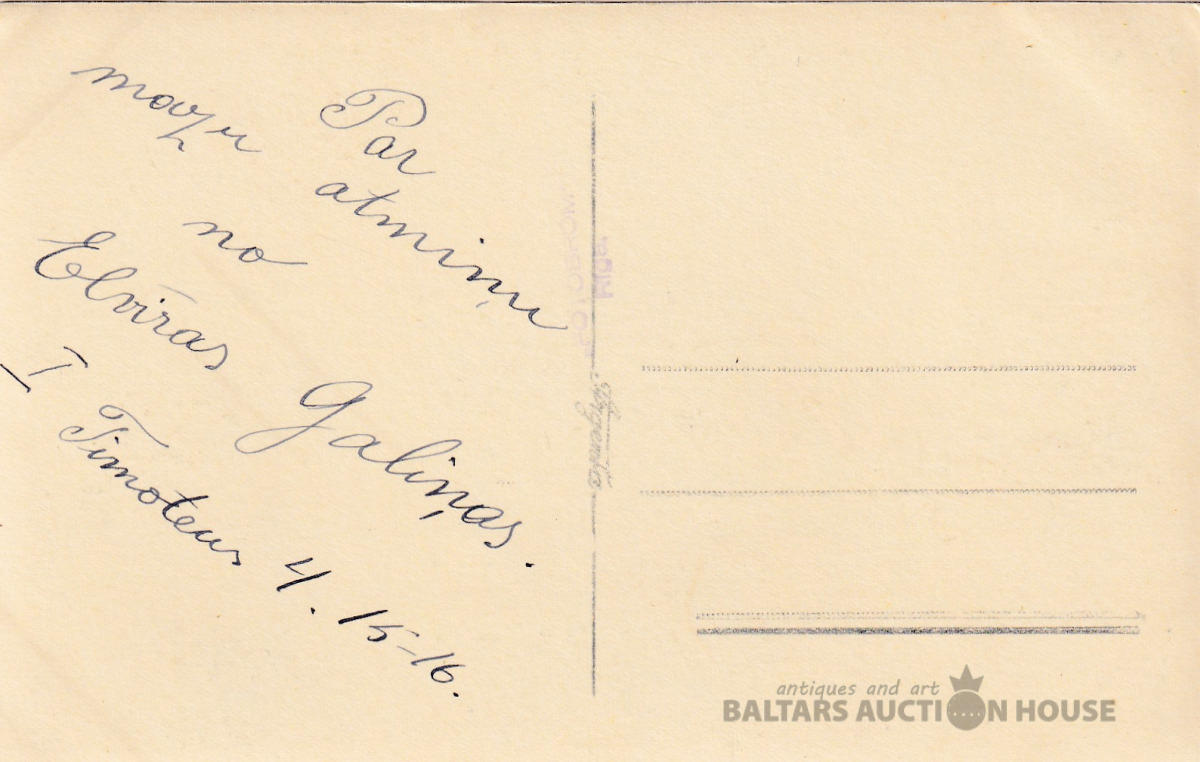 Par
atmiņu
mazu
no
Elvīras Galiņas.
I Timoteus 4. 15-16.
Riga
antiques and art
BALTARS AUCTION HOUSE